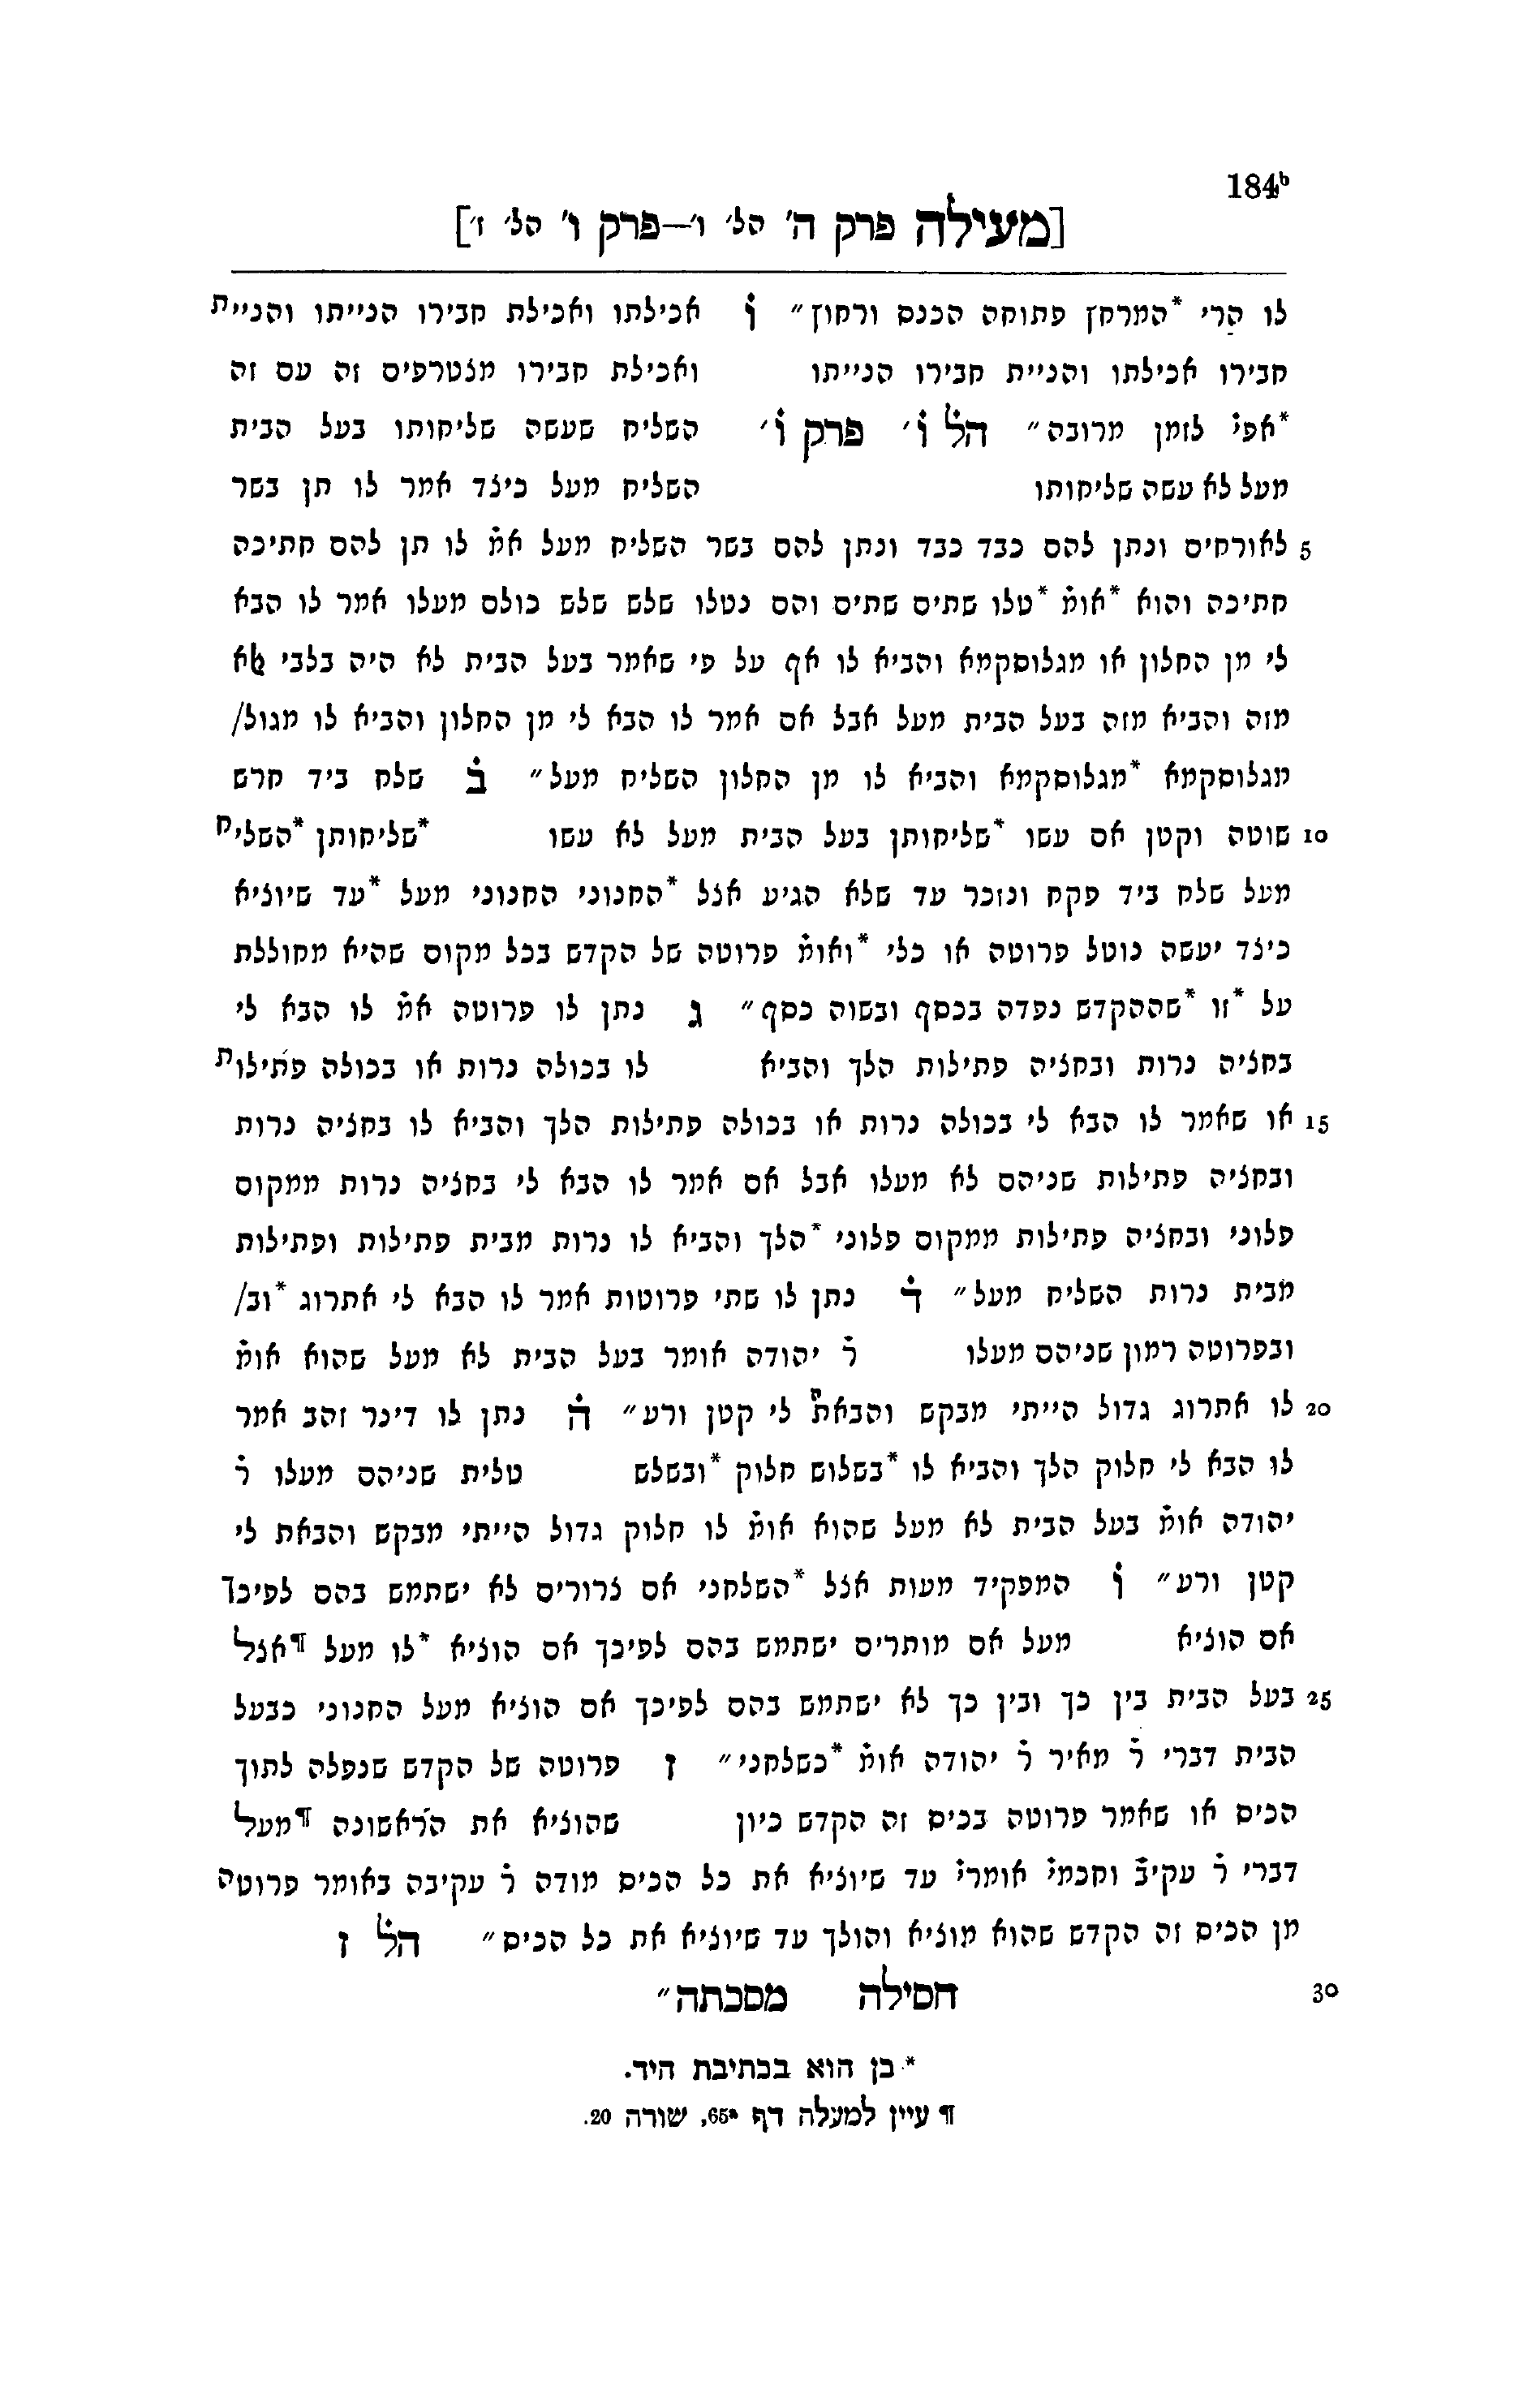 184ᵇ
[מעילה פרק ה' הל' ו'—פרק ו' הל' ז']
לו הרי *המרחץ פתוחה הכנס ורחוץ״ ו̇ אכילתו ואכילת חבירו הנייתו והניית
חבירו אכילתו והניית חבירו הנייתו ואכילת חבירו מצטרפים זה עם זה
*אפי̇ לזמן מרובה״ הל̇ ו̇' פרק ו̇' השליח שעשה שליחותו בעל הבית
מעל לא עשה שליחותו השליח מעל כיצד אמר לו תן בשר
5 לאורחים ונתן להם כבד כבד ונתן להם בשר השליח מעל אמ̇ לו תן להם חתיכה
חתיכה והוא *אומ̇ *טלו שתים שתים והם נטלו שלש שלש כולם מעלו אמר לו הבא
לי מן החלון או מגלוסקמא והביא לו אף על פי שאמר בעל הבית לא היה בלבי אלא
מזה והביא מזה בעל הבית מעל אבל אם אמר לו הבא לי מן החלון והביא לו מגול/
מגלוסקמא *מגלוסקמא והביא לו מן החלון השליח מעל״ ב̇ שלח ביד חרש
10 שוטה וקטן אם עשו *שליחותן בעל הבית מעל לא עשו *שליחותן *השליח
מעל שלח ביד פקח ונזכר עד שלא הגיע אצל *החנוני החנוני מעל *עד שיוציא
כיצד יעשה נוטל פרוטה או כלי *ואומ̇ פרוטה של הקדש בכל מקום שהיא מחוללת
על *זו *שההקדש נפדה בכסף ובשוה כסף״ ג נתן לו פרוטה אמ̇ לו הבא לי
בחציה נרות ובחציה פתילות הלך והביא לו בכולה נרות או בכולה פתילות
15 או שאמר לו הבא לי בכולה נרות או בכולה פתילות הלך והביא לו בחציה נרות
ובחציה פתילות שניהם לא מעלו אבל אם אמר לו הבא לי בחציה נרות ממקום
פלוני ובחציה פתילות ממקום פלוני *הלך והביא לו נרות מבית פתילות ופתילות
מבית נרות השליח מעל״ ד̇ נתן לו שתי פרוטות אמר לו הבא לי אתרוג *וב/
ובפרוטה רמון שניהם מעלו ר̇ יהודה אומר בעל הבית לא מעל שהוא אומ̇
20 לו אתרוג גדול הייתי מבקש והבאתה לי קטן ורע״ ה̇ נתן לו דינר זהב אמר
לו הבא לי חלוק הלך והביא לו *בשלוש חלוק *ובשלש טלית שניהם מעלו ר̇
יהודה אומ̇ בעל הבית לא מעל שהוא אומ̇ לו חלוק גדול הייתי מבקש והבאת לי
קטן ורע״ ו̇ המפקיד מעות אצל *השלחני אם צרורים לא ישתמש בהם לפיכך
אם הוציא מעל אם מותרים ישתמש בהם לפיכך אם הוציא *לו מעל ¶אצל
25 בעל הבית בין כך ובין כך לא ישתמש בהם לפיכך אם הוציא מעל החנוני כבעל
הבית דברי ר̇ מאיר ר̇ יהודה אומ̇ *כשלחני״ ז פרוטה של הקדש שנפלה לתוך
הכיס או שאמר פרוטה בכיס זה הקדש כיון שהוציא את הראשונה ¶מעל
דברי ר̇ עקיב̇ וחכמי̇ אומרי̇ עד שיוציא את כל הכיס מודה ר̇ עקיבה באומר פרוטה
מן הכיס זה הקדש שהוא מוציא והולך עד שיוציא את כל הכיס״ הל̇ ז
30 חסילה מסכתה״
* כן הוא בכתיבת היד.
¶ עיין למעלה דף 65ᵃ, שורה 20.